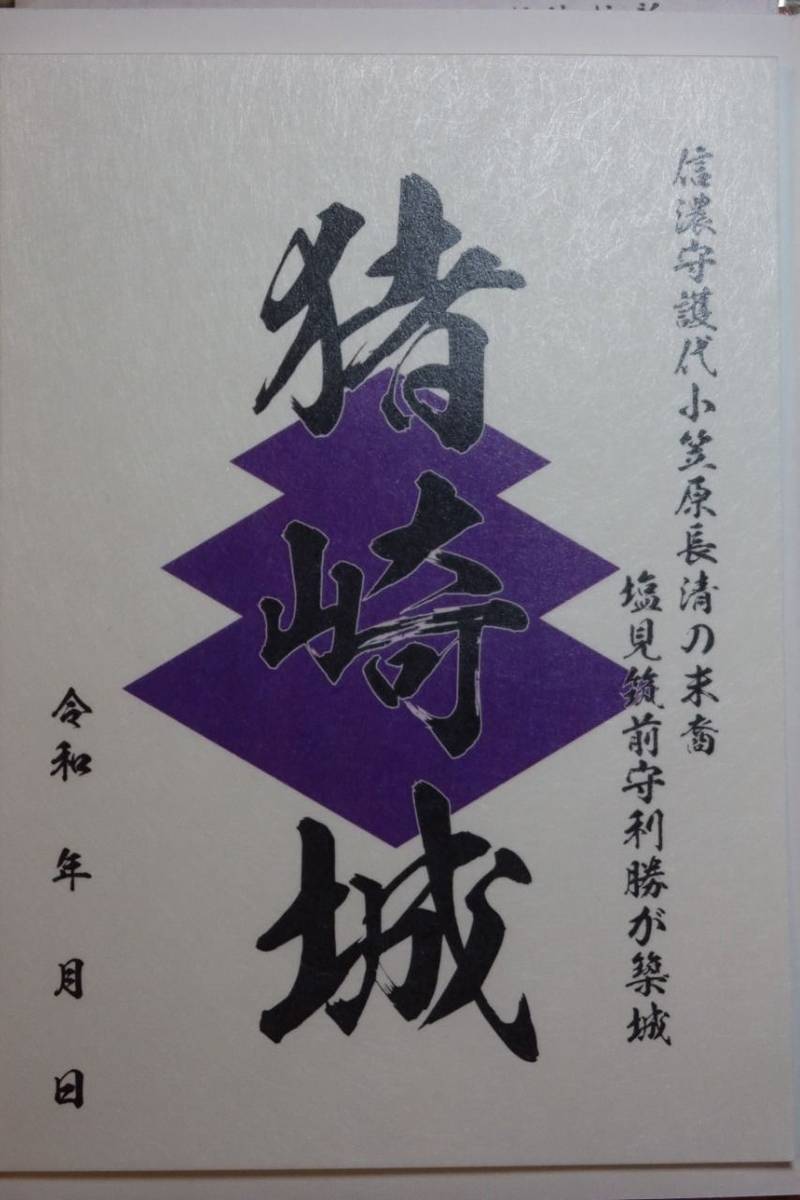 信濃守護代小笠原長清の末裔
塩見筑前守利勝が築城
猪崎城
令和　年　月　日